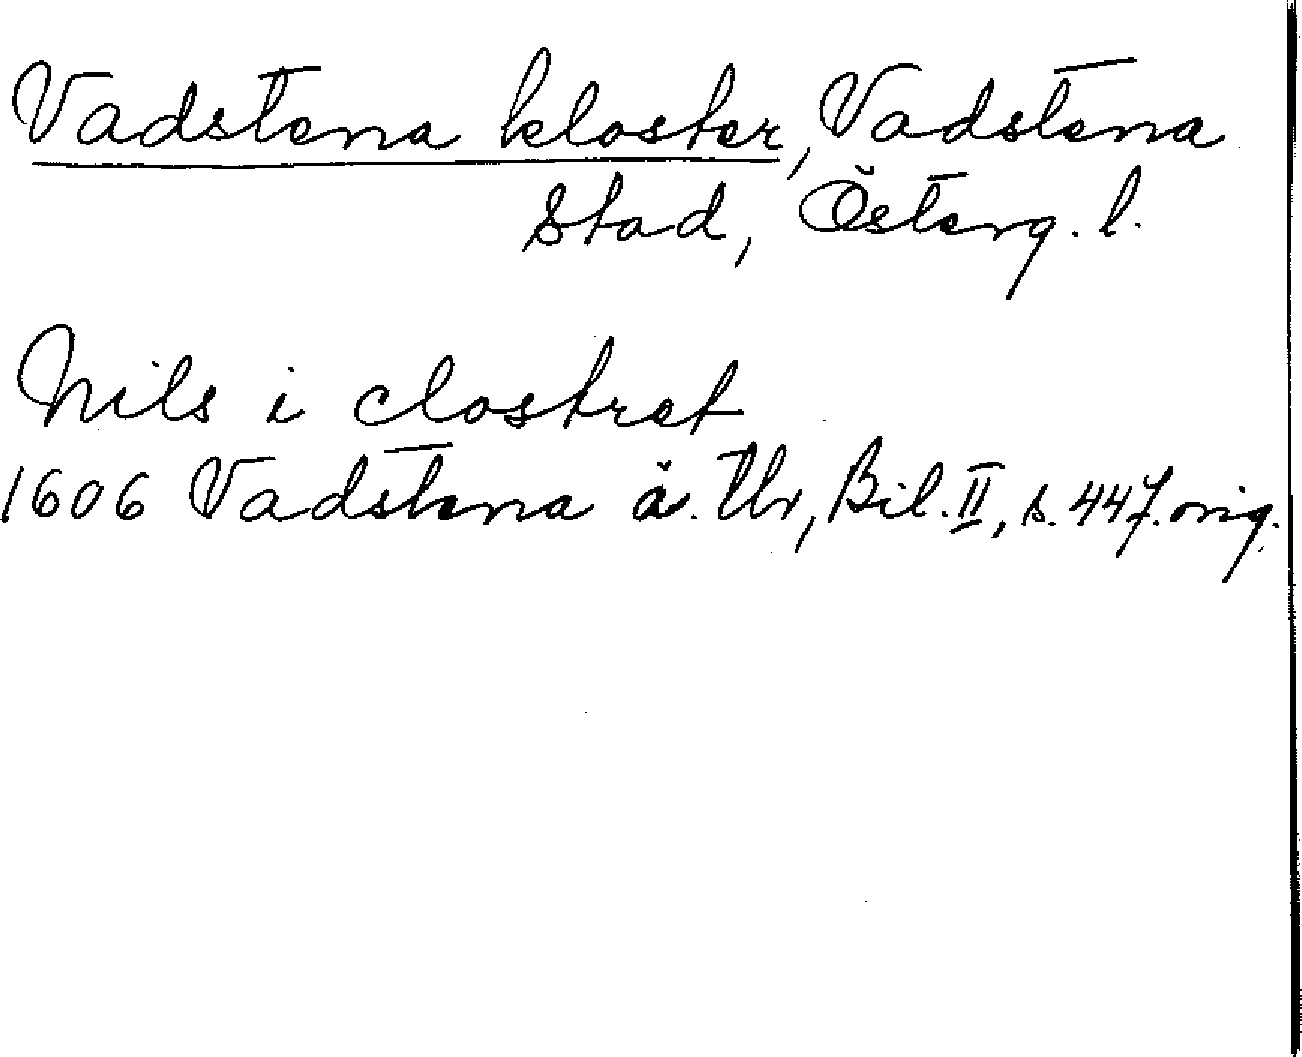 Vadstena kloster, Vadstena
stad, Österg. l.
Nils i clostret
1606 Vadstena ä. Thr, Bil. II, s. 447. orig.